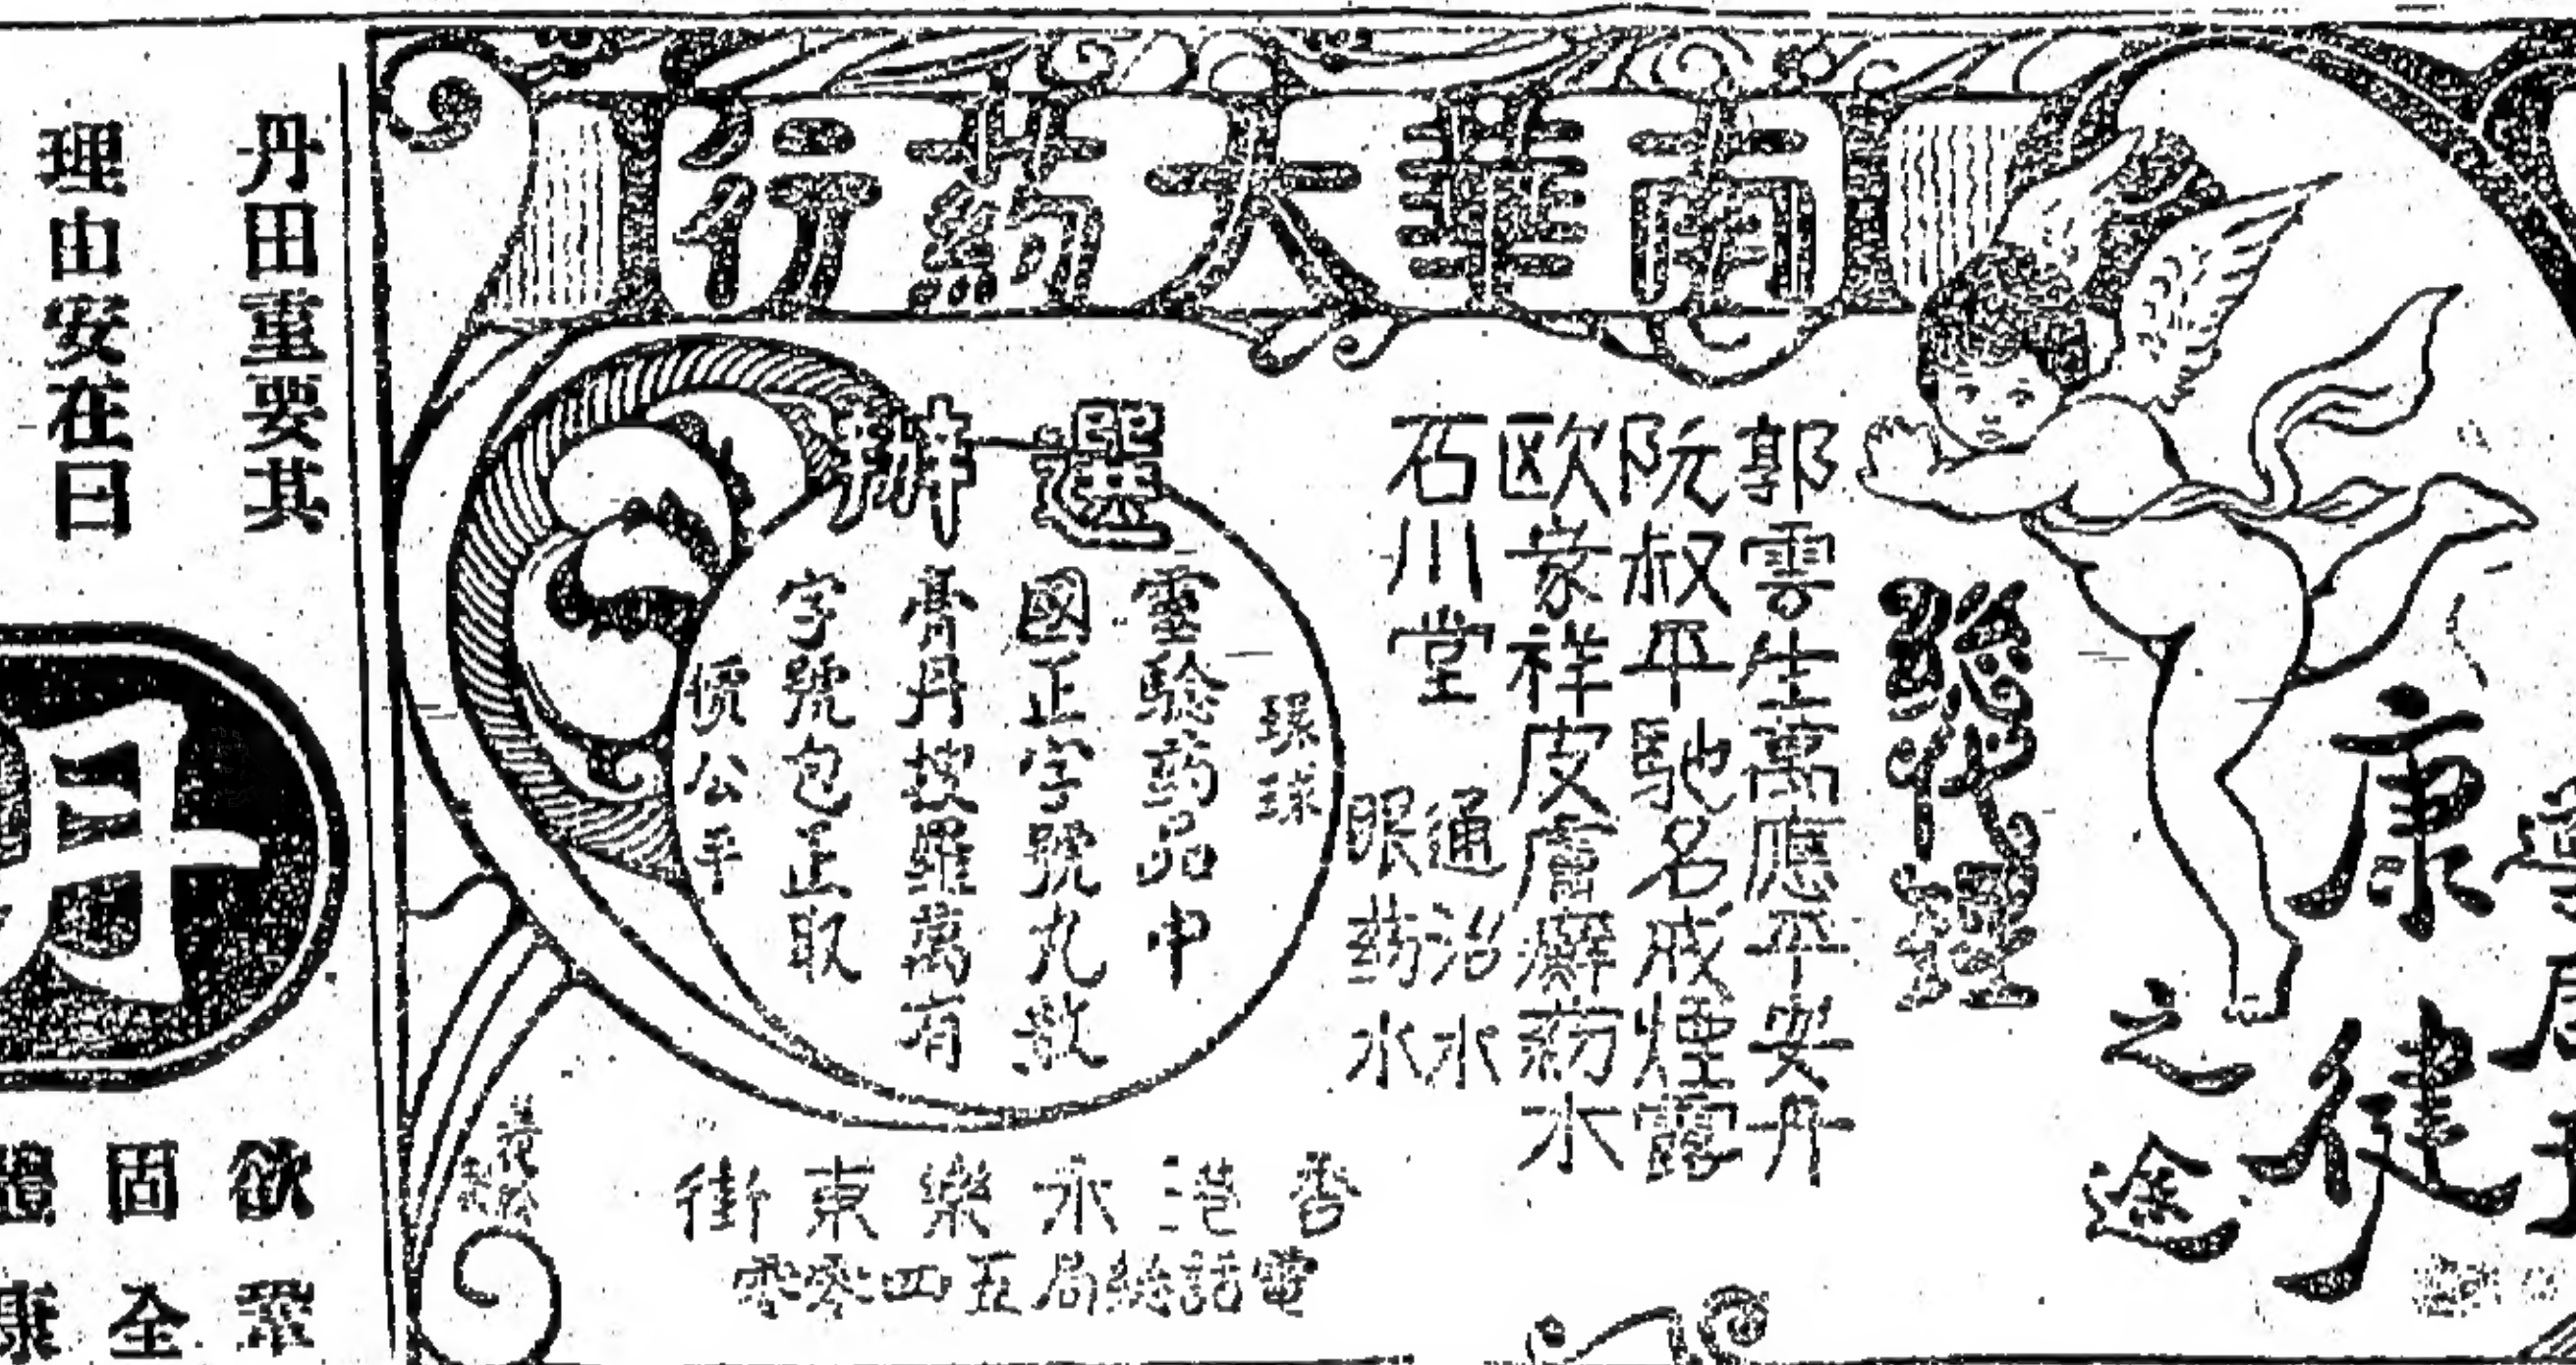 南華大葯行
康健
之途
總代理
郭雲生萬應平安丹
阮叔平馳名戒煙露
欧家祥皮膚癬葯水
石川堂
通治水
眼葯水
選辦
環球
靈驗葯品中
國正字號丸散
膏丹搜羅萬有
字號包正取
價公平
香港永樂東街
電話總局五四零零
丹田重要其
理由安在曰
丹
欲固體
眾全康